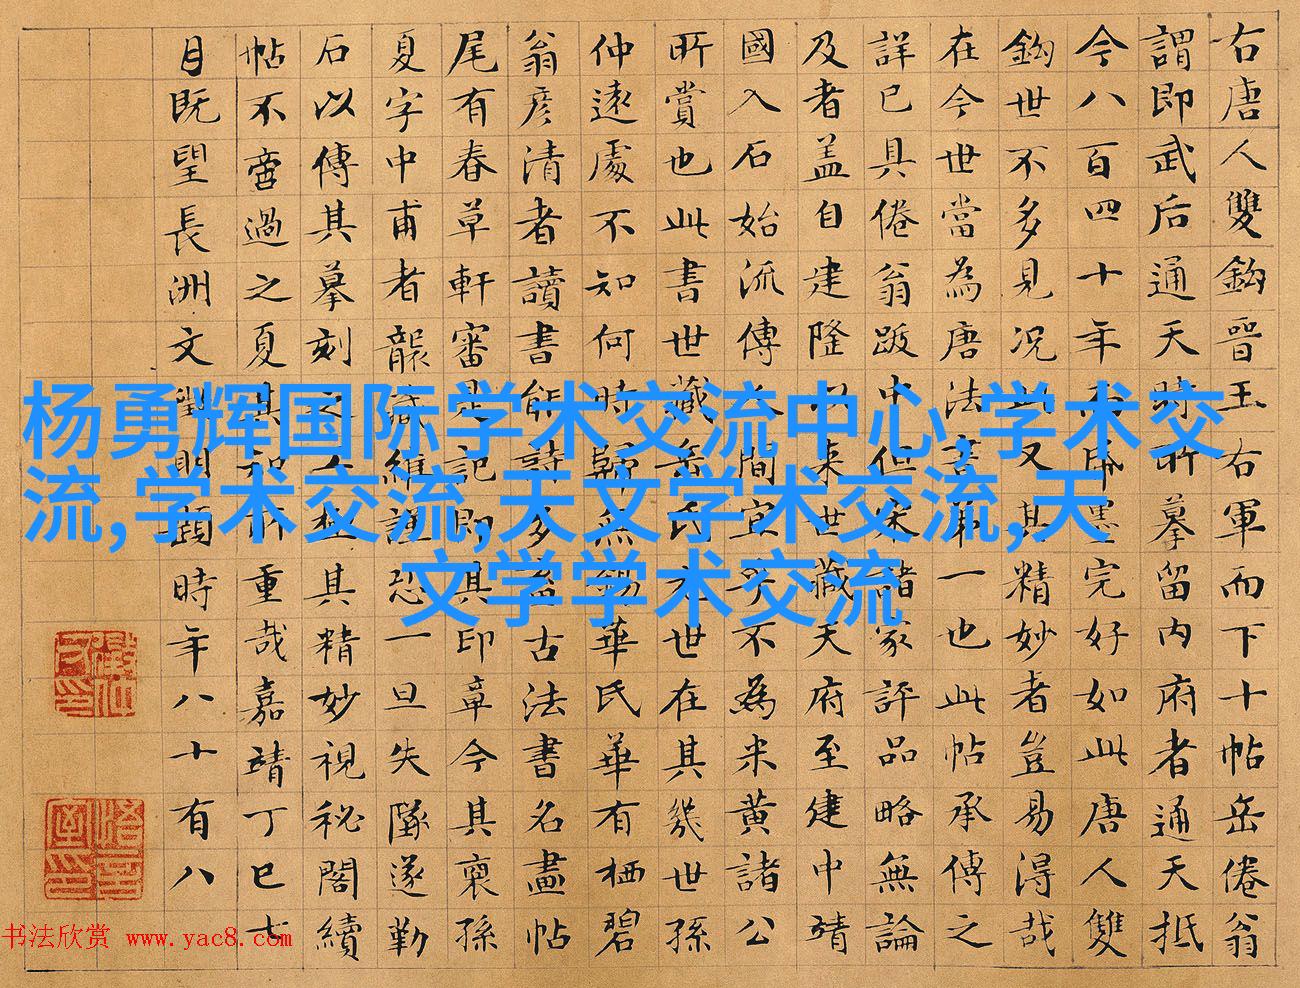 右唐人雙鈎晉王右軍而下十帖岳倦翁
謂即武后通天時所摹留内府者通天抵
今八百四十年而帋墨完好如此唐人雙
鈎世不多見况此又其精妙者豈易得哉
在今世當為唐法書第一也此帖承傳之
詳已具倦翁跋中但宋諸家評品略無論
及者盖自建隆以来世藏天府至建中靖
國入石始流傳人間宜乎不為米黄諸公
所賞也此書世藏岳氏世在其幾世孫
仲遠處不知何時歸無錫華氏華有栖碧
翁彦清者讀書能詩多古法書名畫帖
尾有春草軒審定記即其印章今其裔孫
夏字中甫者襲藏維謹恐一旦失墜遂勒
石以傳其摹刻之極其精妙視秘閣續
帖不啻過之夏其知所重哉嘉靖丁巳七
月既望長洲文徵明題時年八十有八
杨勇辉国际学术交流中心,学术交
流,学术交流,天文学术交流,天
文学学术交流
书法欣赏 www.yac8.com